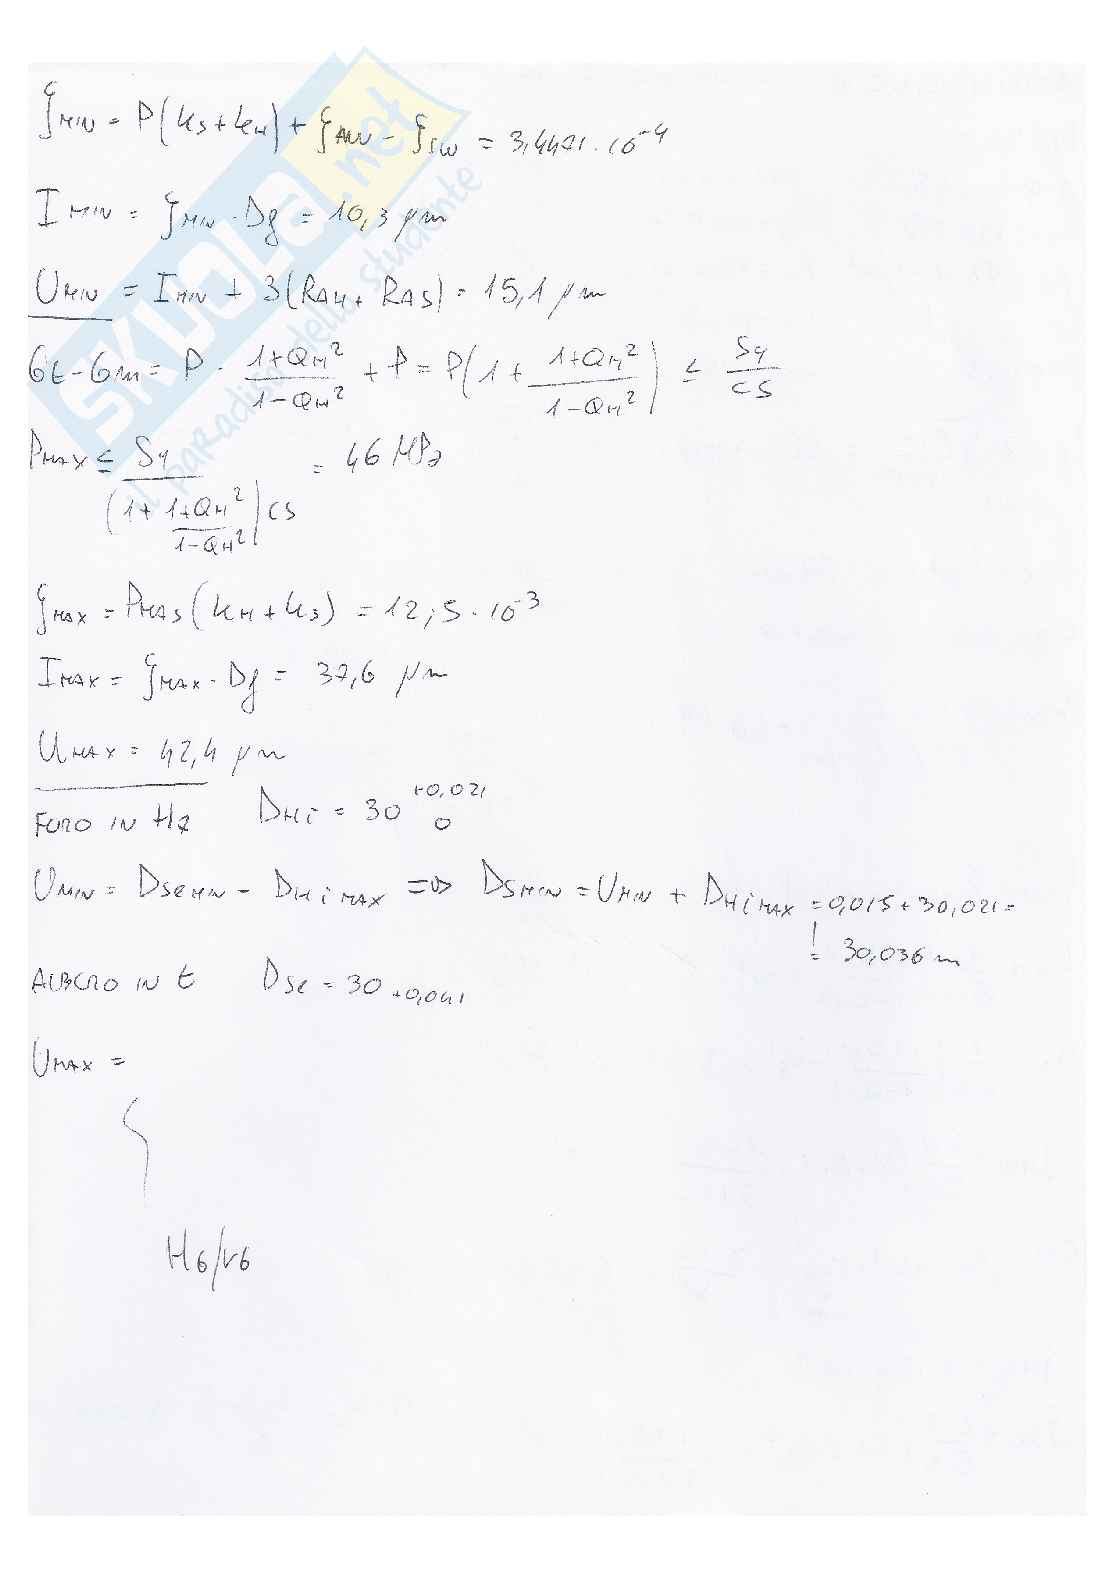 ξMIN = P(KS+KH) + ξAMV - ξSW = 3,4421 · 10^-4
IMIN = ξMIN · Dg = 10,3 μm
UMIN = IMIN + 3(RAH + RAS) = 15,1 μm
σt - σm = P · (1+QH²)/(1-QH²) + P = P(1 + (1+QH²)/(1-QH²)) ≤ Sy/CS
PMAX ≤ Sy/((1 + (1+QH²)/(1-QH²)) CS) = 46 MPa
ξMAX = PMAS(KH+KS) = 12,5 · 10^-3
IMAX = ξMAX · Dg = 37,6 μm
UMAX = 42,4 μm
FORO IN H7 DHi = 30 +0,021 0
UMIN = DseMIN - DHiMAX => DSMIN = UMIN + DHiMAX = 0,015 + 30,021 =
= 30,036 m
ALBERO IN t Dse = 30 +0,041
UMAX =
H6/r6
SKUOLA.net
il paradiso dello studente